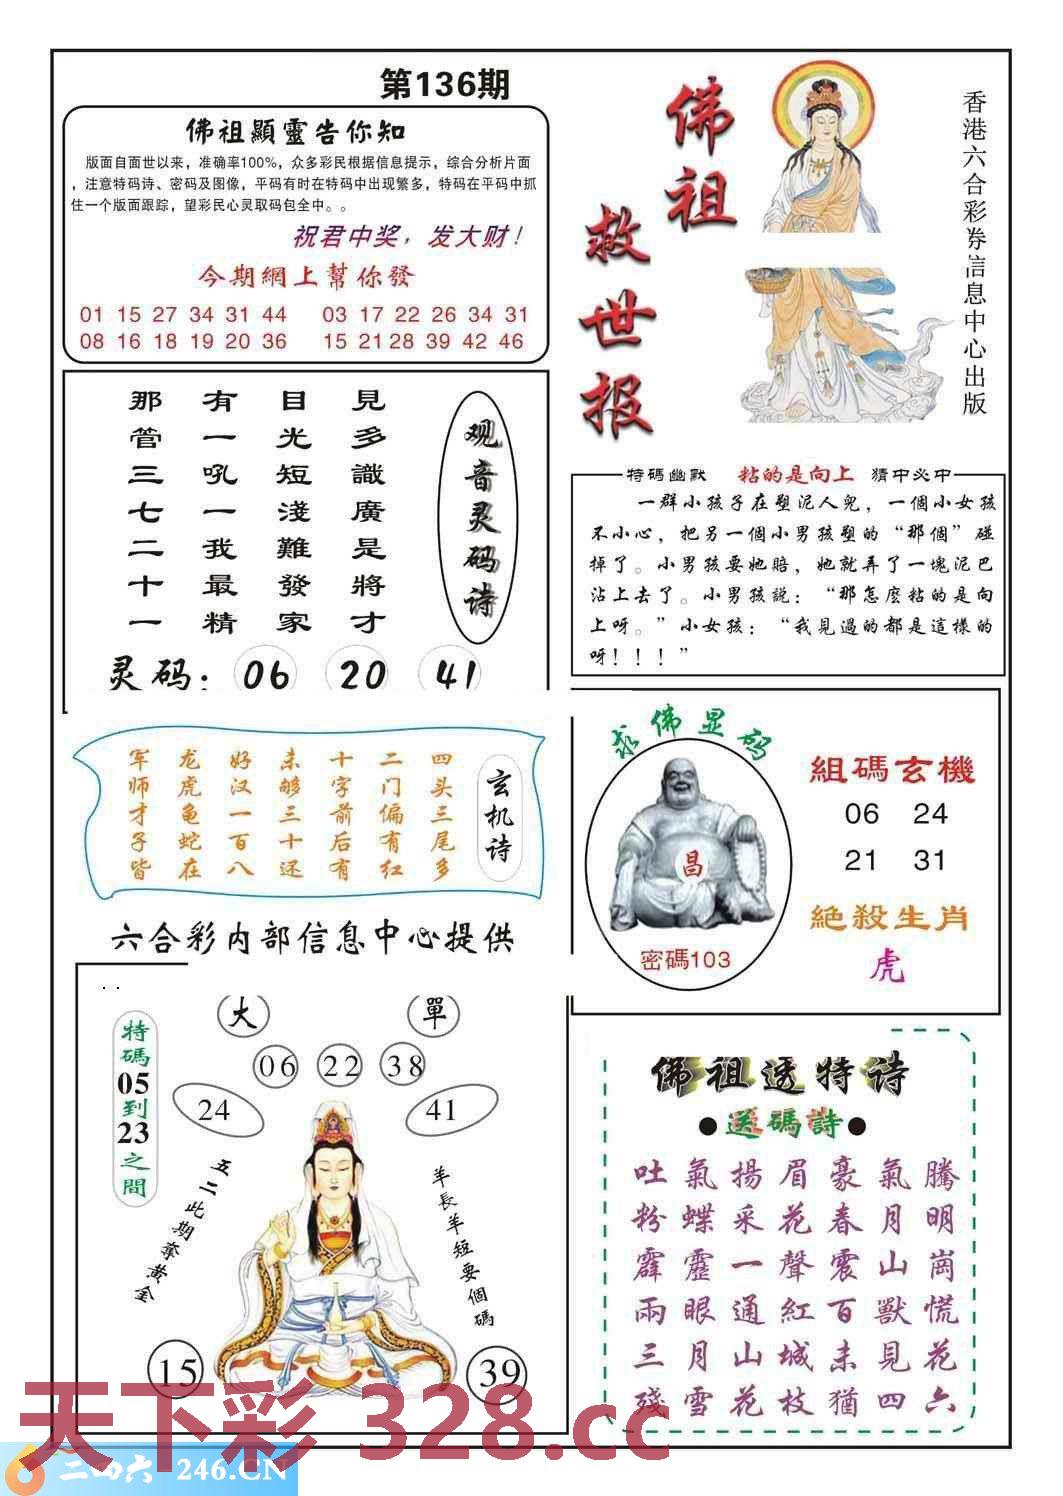 第136期
佛祖顯靈告你知
版面自面世以来，准确率100%，众多彩民根据信息提示，综合分析片面
，注意特码诗、密码及图像，平码有时在特码中出现繁多，特码在平码中抓
住一个版面跟踪，望彩民心灵取码包全中。。
祝君中奖，发大财！
今期網上幫你發
01 15 27 34 31 44 03 17 22 26 34 31
08 16 18 19 20 36 15 21 28 39 42 46
佛祖
救世报
香港六合彩券信息中心出版
观音灵码诗
見多識廣是將才
目光短淺難發家
有一吼一我最精
那管三七二十一
灵码：06 20 41
特碼幽默 粘的是向上 猜中必中
一群小孩子在塑泥人兒，一個小女孩
不小心，把另一個小男孩塑的“那個”碰
掉了。小男孩要她賠，她就弄了一塊泥巴
沾上去了。小男孩説：“那怎麽粘的是向
上呀。”小女孩：“我見過的都是這樣的
呀！！！”
玄机诗
四头三尾多
二门偏有红
十字前后有
未够三十还
好汉一百八
龙虎龟蛇在
军师才子皆
六合彩内部信息中心提供
求佛显码
昌
密碼103
組碼玄機
06 24
21 31
絶殺生肖
虎
特碼05到23之間
大 單
06 22 38
24 41
五二此期奪黄金
羊長羊短要個碼
15 39
佛祖透特诗
●送碼詩●
吐氣揚眉豪氣騰
粉蝶采花春月明
霹靂一聲震山崗
兩眼通紅百獸慌
三月山城未見花
殘雪花枝猶四六
天下彩 328.cc
二四六 246.CN